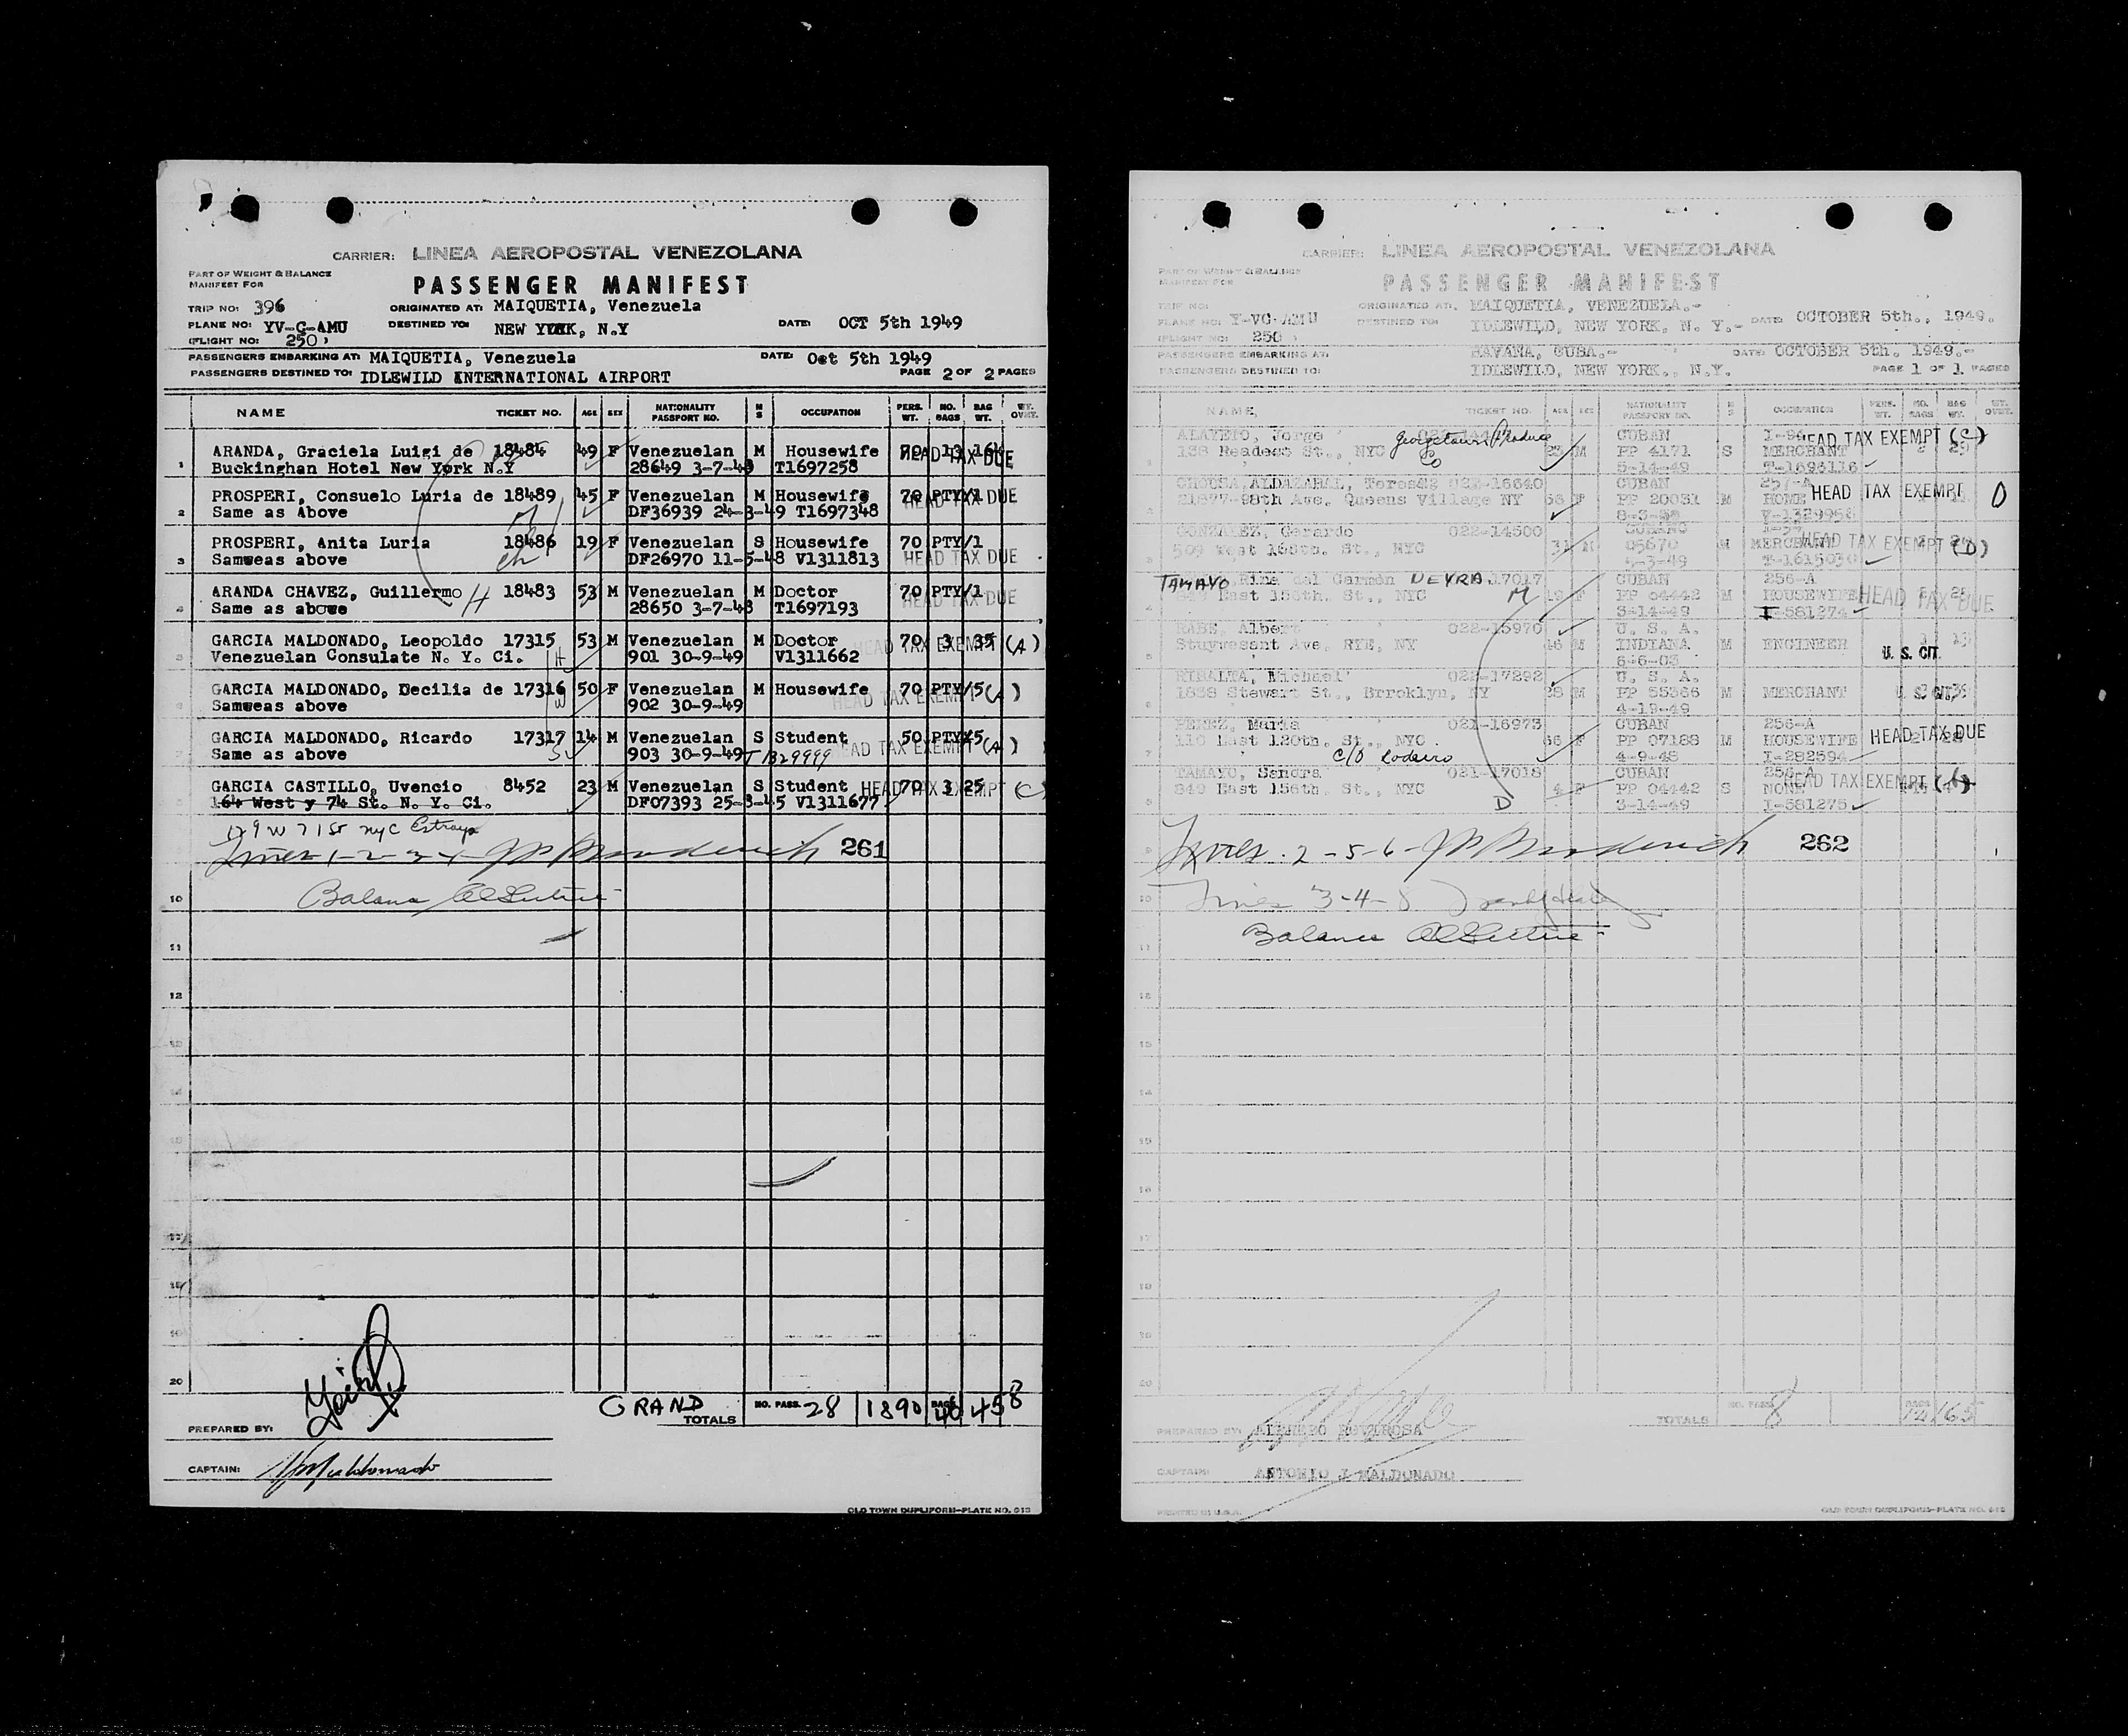 CARRIER: LINEA AEROPOSTAL VENEZOLANA
PART OF WEIGHT & BALANCE
MANIFEST FOR
PASSENGER MANIFEST
TRIP NO: 396 ORIGINATED AT: MAIQUETIA, Venezuela
PLANE NO: YV-C-AMU DESTINED TO: NEW YORK, N.Y DATE: OCT 5th 1949
(FLIGHT NO: 250)
PASSENGERS EMBARKING AT: MAIQUETIA, Venezuela DATE: Oct 5th 1949
PASSENGERS DESTINED TO: IDLEWILD INTERNATIONAL AIRPORT PAGE 2 OF 2 PAGES
NAME TICKET NO. AGE SEX NATIONALITY PASSPORT NO. M S OCCUPATION PERS. WT. NO. BAGS BAG WT. WT. OVWT.
1 ARANDA, Graciela Luigi de 18484 49 F Venezuelan M Housewife 70 13 164 HEAD TAX DUE
Buckinghan Hotel New York N.Y 28649 3-7-48 T1697258
2 PROSPERI, Consuelo Luria de 18489 45 F Venezuelan M Housewife 70 PTY/1 HEAD TAX DUE
Same as Above DF36939 24-3-49 T1697348
3 PROSPERI, Anita Luria 18486 19 F Venezuelan S Housewife 70 PTY/1
Samweas above ch DF26970 11-5-48 V1311813 HEAD TAX DUE
4 ARANDA CHAVEZ, Guillermo H 18483 53 M Venezuelan M Doctor 70 PTY/1
Same as abowe 28650 3-7-48 T1697193 HEAD TAX DUE
5 GARCIA MALDONADO, Leopoldo 17315 53 M Venezuelan M Doctor 70 3 35 HEAD TAX EXEMPT (A)
Venezuelan Consulate N. Y. Ci. H 901 30-9-49 V1311662
6 GARCIA MALDONADO, Decilia de 17316 50 F Venezuelan M Housewife 70 PTY/5 HEAD TAX EXEMPT (A)
Samweas above W 902 30-9-49
7 GARCIA MALDONADO, Ricardo 17317 14 M Venezuelan S Student 50 PTY/5
Same as above S 903 30-9-49 T1329999 HEAD TAX EXEMPT (A)
GARCIA CASTILLO, Uvencio 8452 23 M Venezuelan S Student 70 1 25 HEAD TAX EXEMPT (C)
164 West y 74 St. N. Y. Ci. DF07393 25-3-45 V1311677
129 W 71 St NYC
Lines 1-2-3-4- 261
10 Balance
11
12
13
14
15
17
18
19
20
GRAND TOTALS NO. PASS. 28 1890 BAGS 40 458
PREPARED BY:
CAPTAIN: Maldonado
OLD TOWN DUPLIFORM-PLATE NO. 615
CARRIER: LINEA AEROPOSTAL VENEZOLANA
PART OF WEIGHT & BALANCE
MANIFEST FOR
PASSENGER MANIFEST
TRIP NO: ORIGINATED AT: MAIQUETIA, VENEZUELA.-
PLANE NO: Y-VC-AMU DESTINED TO: IDLEWILD, NEW YORK, N. Y.- DATE: OCTOBER 5th., 1949.
(FLIGHT NO: 250)
PASSENGERS EMBARKING AT: HAVANA, CUBA.- DATE: OCTOBER 5th. 1949.-
PASSENGERS DESTINED TO: IDLEWILD, NEW YORK., N.Y. PAGE 1 OF 1 PAGES
NAME, TICKET NO. AGE SEX NATIONALITY PASSPORT NO. M S OCCUPATION PERS. WT. NO. BAGS BAG WT. WT. OVWT.
ALAYETO, Jorge Georgetown Produce CUBAN I-94 HEAD TAX EXEMPT (C)
138 Readeco St., NYC Co 23 M PP 4171 S MERCHANT 2 29
5-14-49 T-1696116
CHOUSA, ALDAZABAL, Teresa 022-16640 CUBAN 257-A
21877-98th Ave. Queens Village NY 56 F PP 20031 M HOME HEAD TAX EXEMPT D
V-1329958
GONZALEZ, Gerardo 022-14500
509 West 168th. St., NYC 31 M 05670 MERCHANT HEAD TAX EXEMPT (D)
5-3-49
TAMAYO, Rina del Carmen DEVRA 17017 CUBAN 256-A
849 East 156th. St., NYC M 19 F PP 04442 M HOUSEWIFE HEAD TAX DUE
3-14-49 I-581274
RABE, Albert 022-15970 U. S. A.
Stuyvesant Ave, RYE, NY 46 M INDIANA M ENGINEER 1 13
6-6-03 U. S. CIT.
RIBALTA, Michael 022-17292 U. S. A.
1838 Stewart St., Brroklyn, NY 28 M PP 55366 M MERCHANT U. S. CIT.
4-19-49
PEREZ, Maria 021-16973 CUBAN 256-A
110 East 120th. St., NYC 66 F PP 07188 M HOUSEWIFE HEAD TAX DUE
c/o Rodeiro 4-9-48 I-282594
TAMAYO, Sandra 021-17018 CUBAN 256-A HEAD TAX EXEMPT
849 East 156th. St., NYC 4 F PP 04442 S NONE
D 3-14-49 I-581275
Lines 2-5-6- 262
10 Lines 3-4-8
11 Balance
12
13
14
15
16
17
18
19
20
TOTALS NO. PASS. 8 BAGS 14 165
PREPARED BY: ALFREDO
CAPTAIN: ANTONIO J MALDONADO
PRINTED IN U.S.A. OLD TOWN DUPLIFORM-PLATE NO. 615